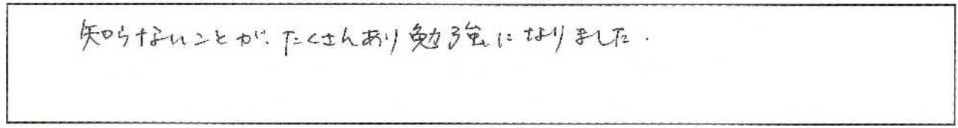 知らないことが、たくさんあり勉強になりました.